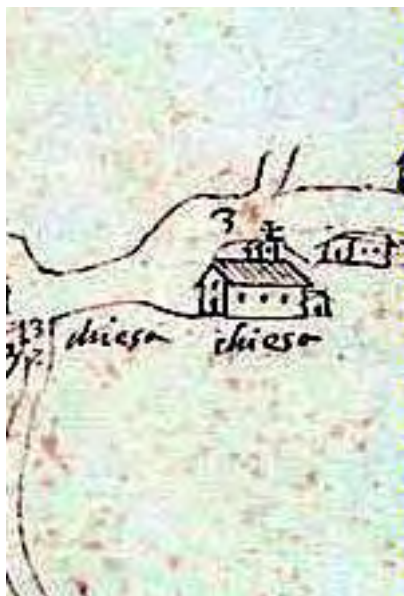 3
13
chiesa chiesa